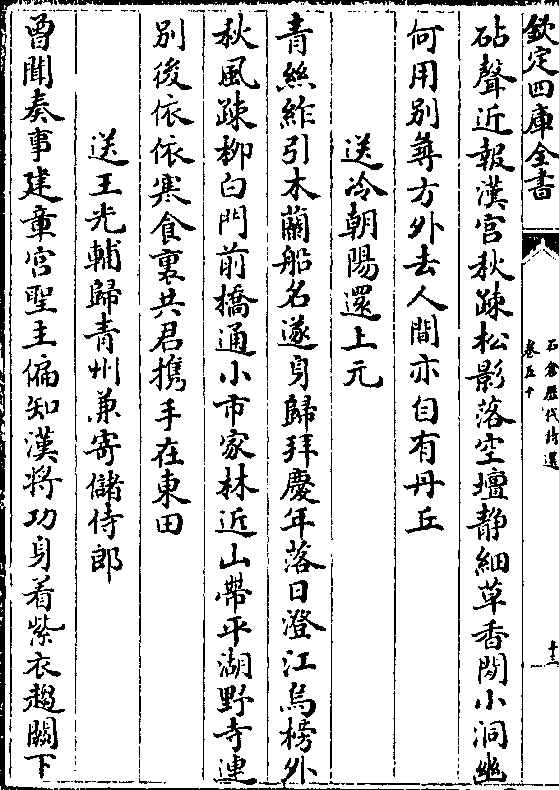 欽定四庫全書
石倉歷代詩選
卷五十
十三
砧聲近報漢宫秋踈松影落空壇静細草香閒小洞幽
何用别尋方外去人間亦自有丹丘
送冷朝陽還上元
青絲䋏引木蘭船名遂身歸拜慶年落日澄江烏榜外
秋風踈柳白門前橋通小市家林近山帶平湖野寺連
别後依依寒食裏共君携手在東田
送王光輔歸青州兼寄儲侍郎
曾聞奏事建章宫聖主偏知漢將功身着紫衣趨闕下